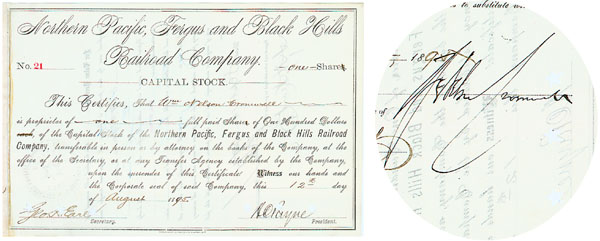 Northern Pacific, Fergus and Black Hills
Railroad Company.
No. 21
one Share
CAPITAL STOCK.
This Certifies, That Wm Nelson Cromwell
is proprietor of one full paid Share of One Hundred Dollars
each, of the Capital Stock of the Northern Pacific, Fergus and Black Hills Railroad
Company, transferable in person or by attorney on the books of the Company, at the
office of the Secretary, or at any Transfer Agency established by the Company,
upon the surrender of this Certificate Witness our hands and
the Corporate seal of said Company, this 12th day
of August 1895
Geo. S. Earl
Secretary.
President.
to substitute
1895
Wm Nelson Cromwell